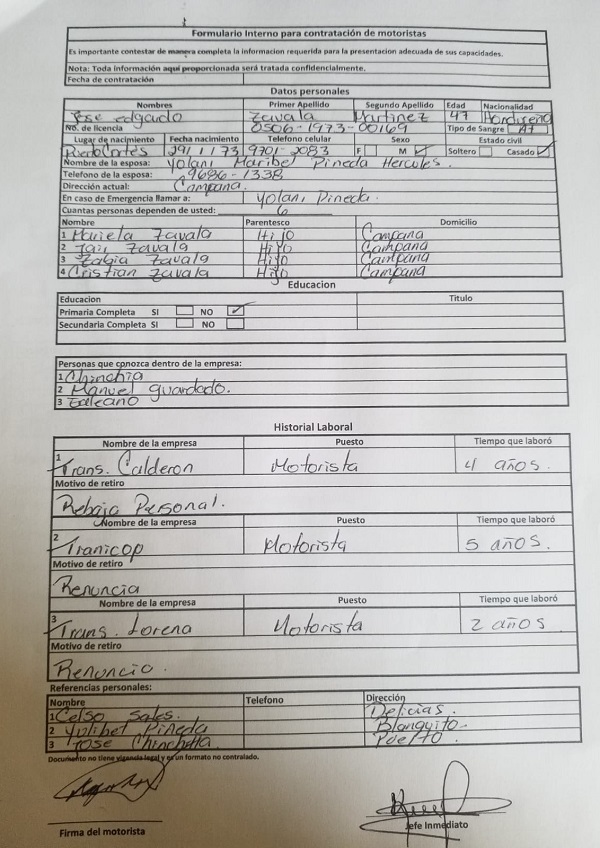 Formulario Interno para contratación de motoristas
Es importante contestar de manera completa la informacion requerida para la presentacion adecuada de sus capacidades.
Nota: Toda información aqui proporcionada será tratada confidencialmente.
Fecha de contratación
Datos personales
Nombres Primer Apellido Segundo Apellido Edad Nacionalidad
Jose edgardo Zavala Martinez 47 Hondureña
No. de licencia 0506-1973-00169 Tipo de Sangre
Lugar de nacimiento Fecha nacimiento Telefono celular Sexo Estado civil
Puerto Cortes 29/11/73 9701-2083 F M Soltero Casado
Nombre de la esposa: Yolani Maribel Pineda Hercules.
Telefono de la esposa: 9686-1338
Dirección actual: Campana.
En caso de Emergencia llamar a: Yolani Pineda.
Cuantas personas dependen de usted: 6
Nombre Parentesco Domicilio
1 Mariela Zavala Hijo Campana
2 Zavala Hijo Campana
3 Zavala Hijo Campana
4 Cristian Zavala Hijo Campana
Educacion
Educacion Titulo
Primaria Completa SI NO
Secundaria Completa SI NO
Personas que cpnozca dentro de la empresa:
1 Chinchia
2 Manuel guardado.
3 Galeano
Historial Laboral
Nombre de la empresa Puesto Tiempo que laboró
1 Trans. Calderon Motorista 4 años.
Motivo de retiro
Rebajo Personal.
Nombre de la empresa Puesto Tiempo que laboró
2 Tranicop Motorista 5 años.
Motivo de retiro
Renuncia
Nombre de la empresa Puesto Tiempo que laboró
3 Trans. Lorena Motorista 2 años
Motivo de retiro
Renuncio.
Referencias personales:
Nombre Telefono Dirección
1 Celso Sales. Delicias.
2 Yolibet Pineda Blanquito.
3 Jose Chinchilla Puerto.
Documento no tiene vigancia legal y es un formato no contralado.
Firma del motorista Jefe Inmediato